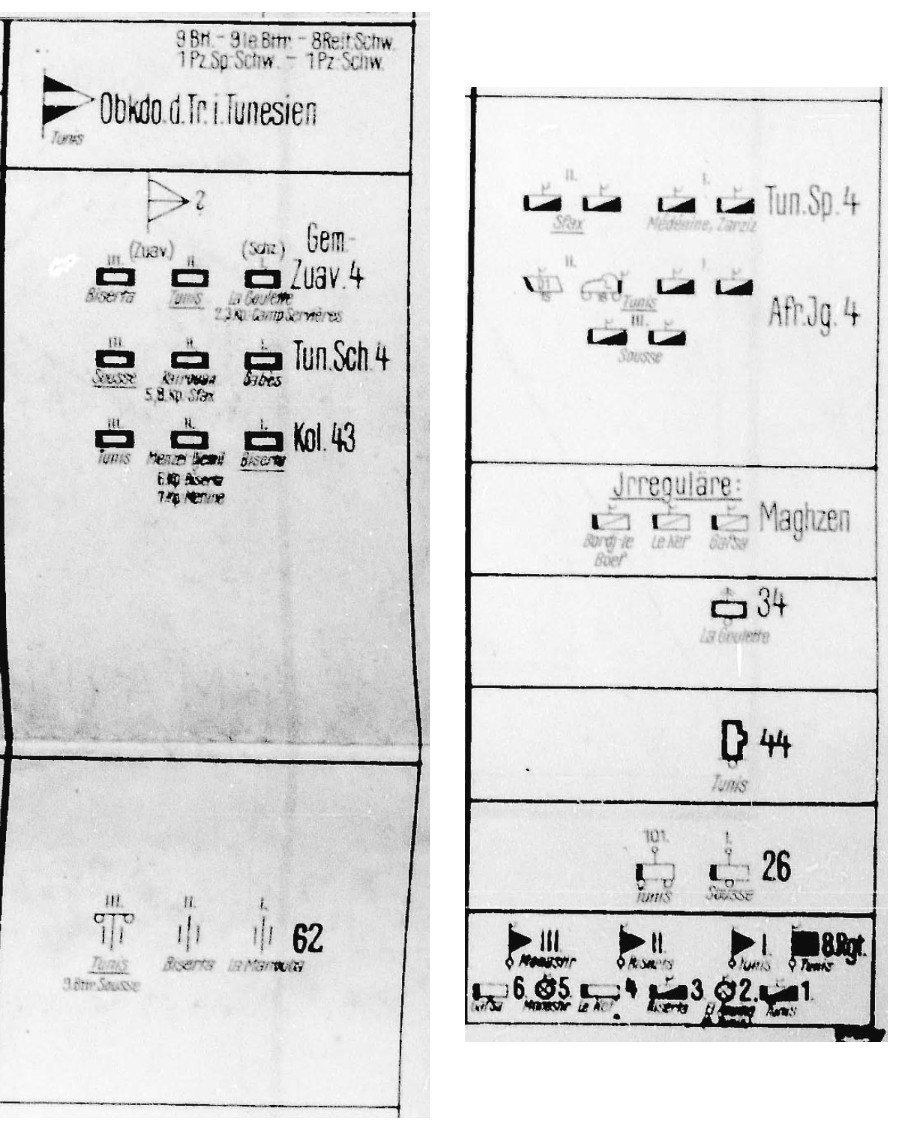 9 Btl. - 9 le.Bttr. - 8 Reit.Schw.
1 Pz.Sp.Schw. - 1 Pz.Schw.
Obkdo.d.Tr.i.Tunesien
Tunis
2
(Zuav.) (Schz.) Gem-
III. II. I. Zuav.4
Biserta Tunis La Goulette
2,3.Kp. Camp Servières
III. II. I. Tun.Sch.4
Sousse Kairouan Gabes
5.,8.Kp. Sfax
III. II. I. Kol.43
Tunis Menzel Biserta
6.Kp Biserta
7.Kp
III. II. I. 62
Tunis Biserta La Marsa
9.Bttr. Sousse
II. I. Tun.Sp.4
Sfax Médenine, Zarziz
II. I.
Tunis
Afr.Jg.4
III.
Sousse
Jrreguläre:
Maghzen
Bordj-le Le Kef Gafsa
Boef
34
La Goulette
44
Tunis
101. I. 26
Tunis Sousse
III. II. I. 8.Rgt.
Monastir Biserta Tunis Tunis
6. 5. 4. 3. 2. 1.
Gafsa Monastir Le Kef Biserta El Tunis